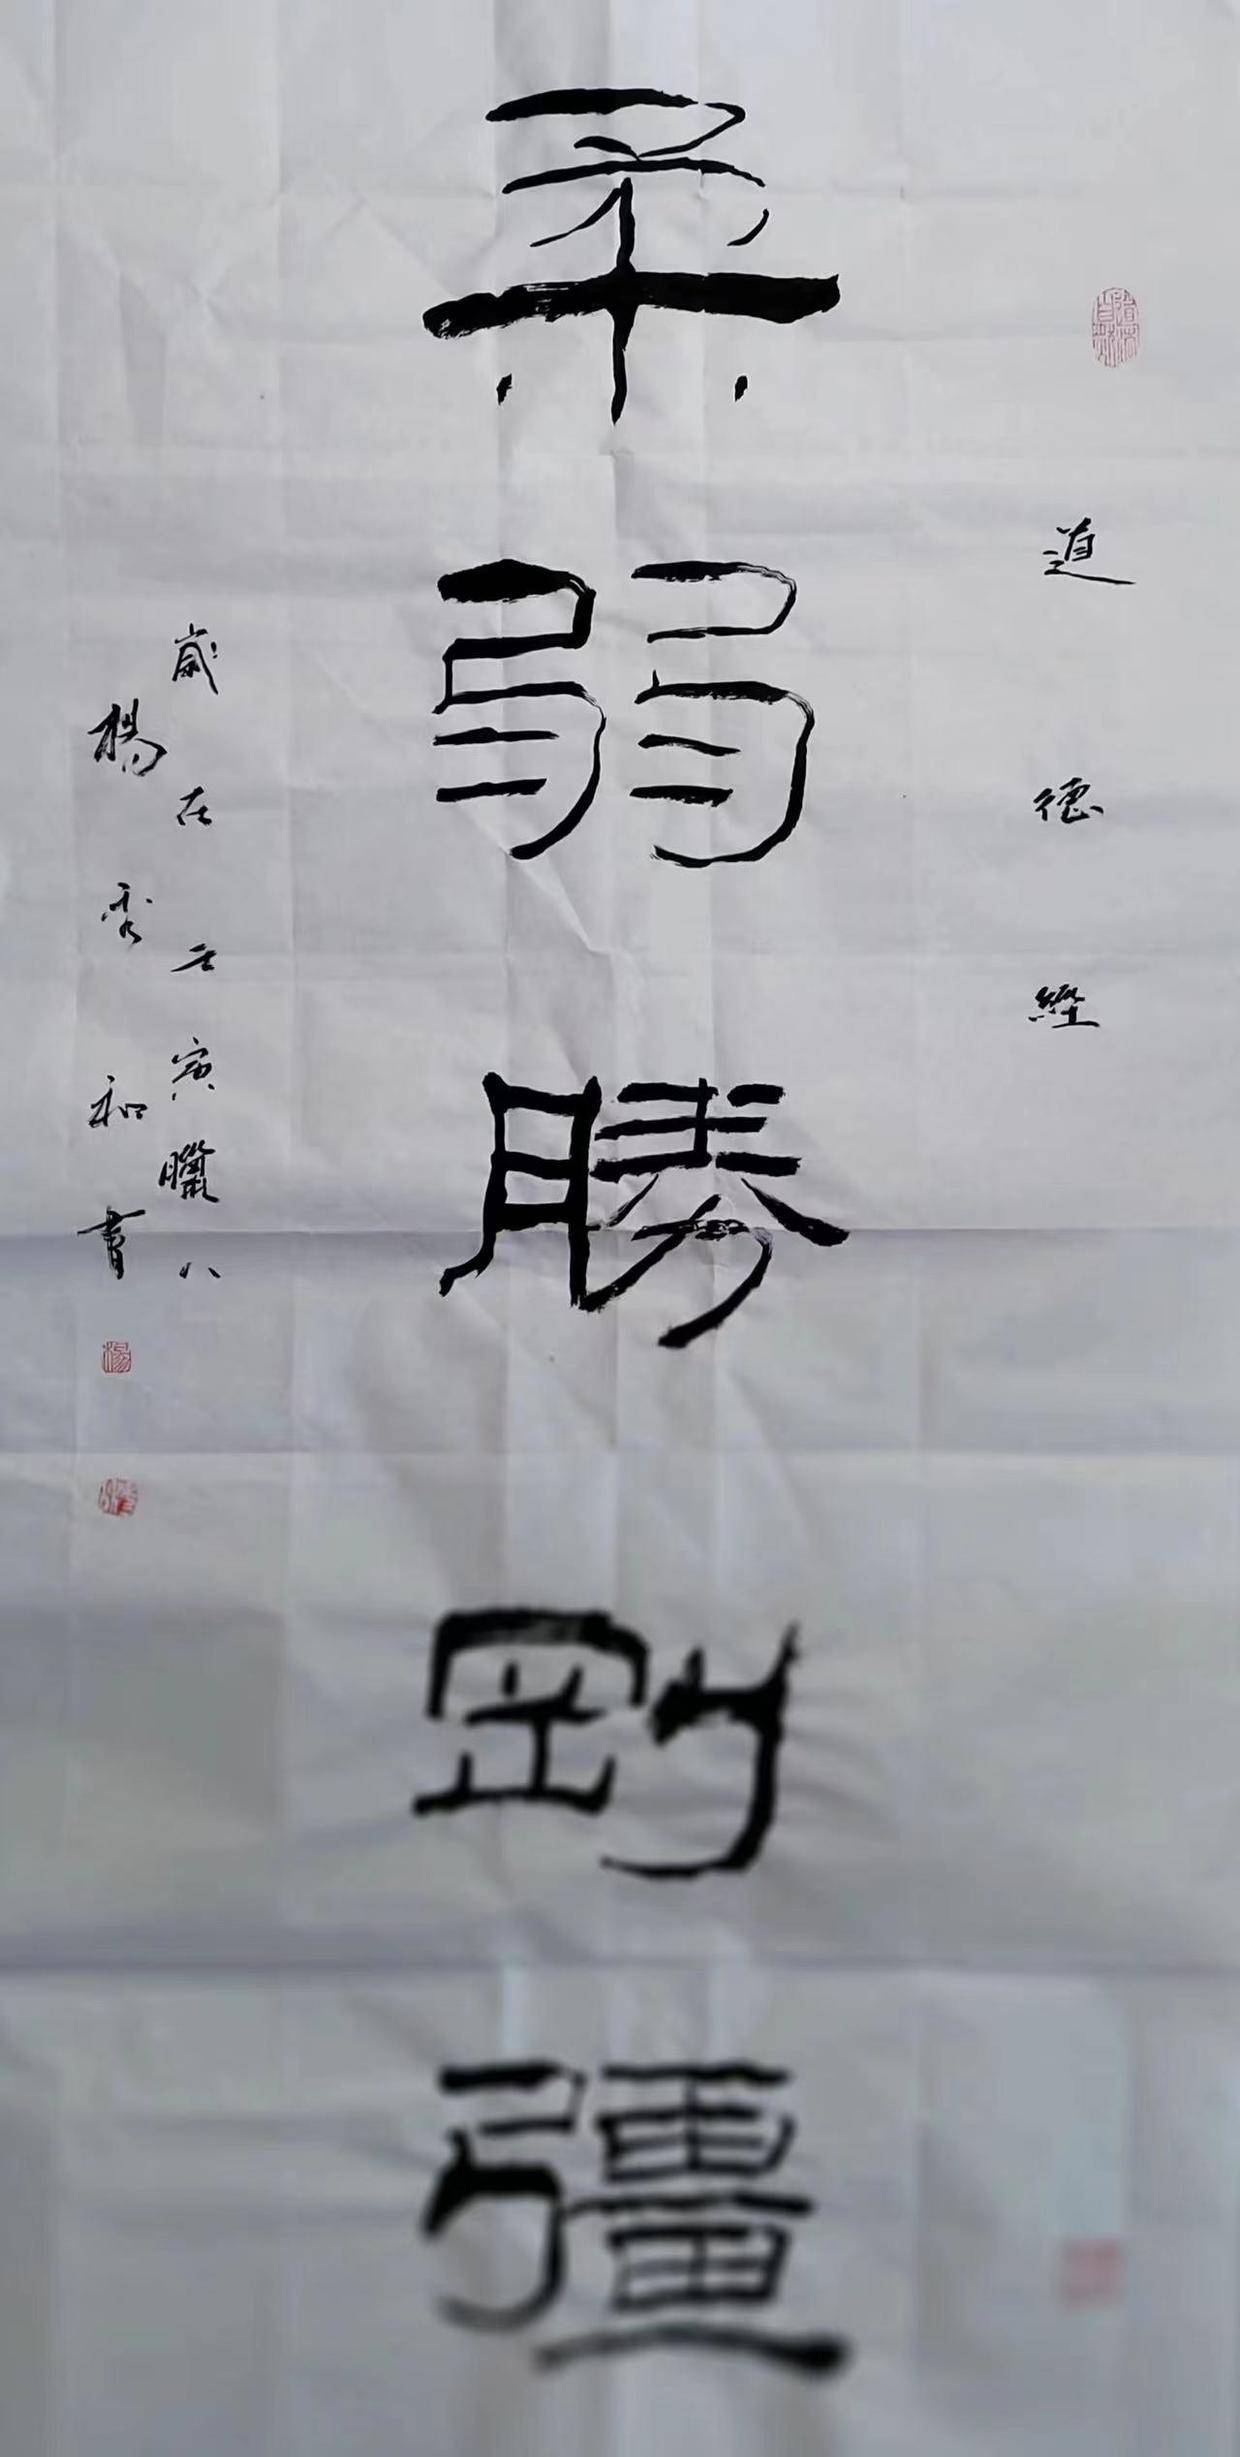 道德經
柔弱勝剛彊
歲在壬寅臘八
楊秀和書
楊